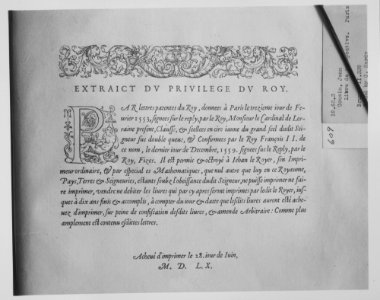 EXTRAICT DU PRIVILEGE DU ROY.
PAR lettres patentes du Roy, donnees à Paris le trezieme iour de Fe-
urier 1553, signees sur le reply, par le Roy, Monsieur le Cardinal de Lor-
raine present, Clausse, & seellees en cire iaune du grand seel dudit Sei-
gneur sus double queue, & Confirmees par le Roy François II. de
ce nom, le dernier iour de Decembre, 1559. signees sur le Reply, par le
Roy, Fizes. Il est permis & octroyé à Iehan le Royer, son Impri-
meur ordinaire, & par especial es Mathematiques, que nul autre que luy en ce Royaume,
Pays, Terres & Seigneuries, estants soubz l'obeissance dudit Seigneur, ne puisse imprimer ne fai-
re imprimer, vendre ne debiter les liures qui par cy apres seront imprimez par ledit le Royer, ius-
ques à dix ans finis & accomplis, à compter du iour & datte que lesdits liures auront esté ache-
uez d'imprimer, sur peine de confiscation desdits liures, & amende Arbitraire: Comme plus
amplement est contenu esdittes lettres.
Acheué d'imprimer le 28. iour de Iuin,
M. D. LX.
Cousin, Jean
Livre de
Paris
609